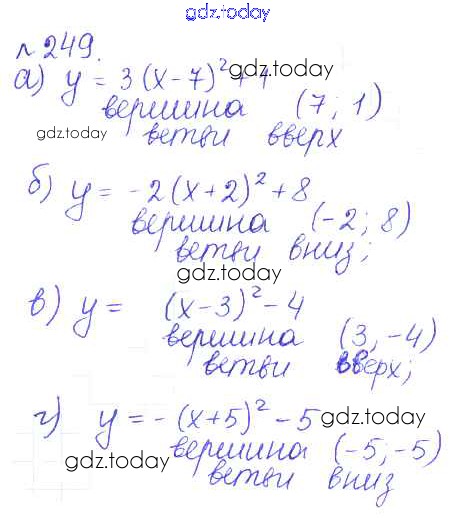 gdz.today
№249.
а) y = 3(x-7)² + 1
gdz.today
вершина (7; 1)
gdz.today
ветви вверх
б) y = -2(x+2)² + 8
вершина (-2; 8)
ветви вниз;
gdz.today
в) y = (x-3)² - 4
вершина (3, -4)
gdz.today
ветви вверх;
г) y = -(x+5)² - 5
gdz.today
вершина (-5, -5)
gdz.today
ветви вниз